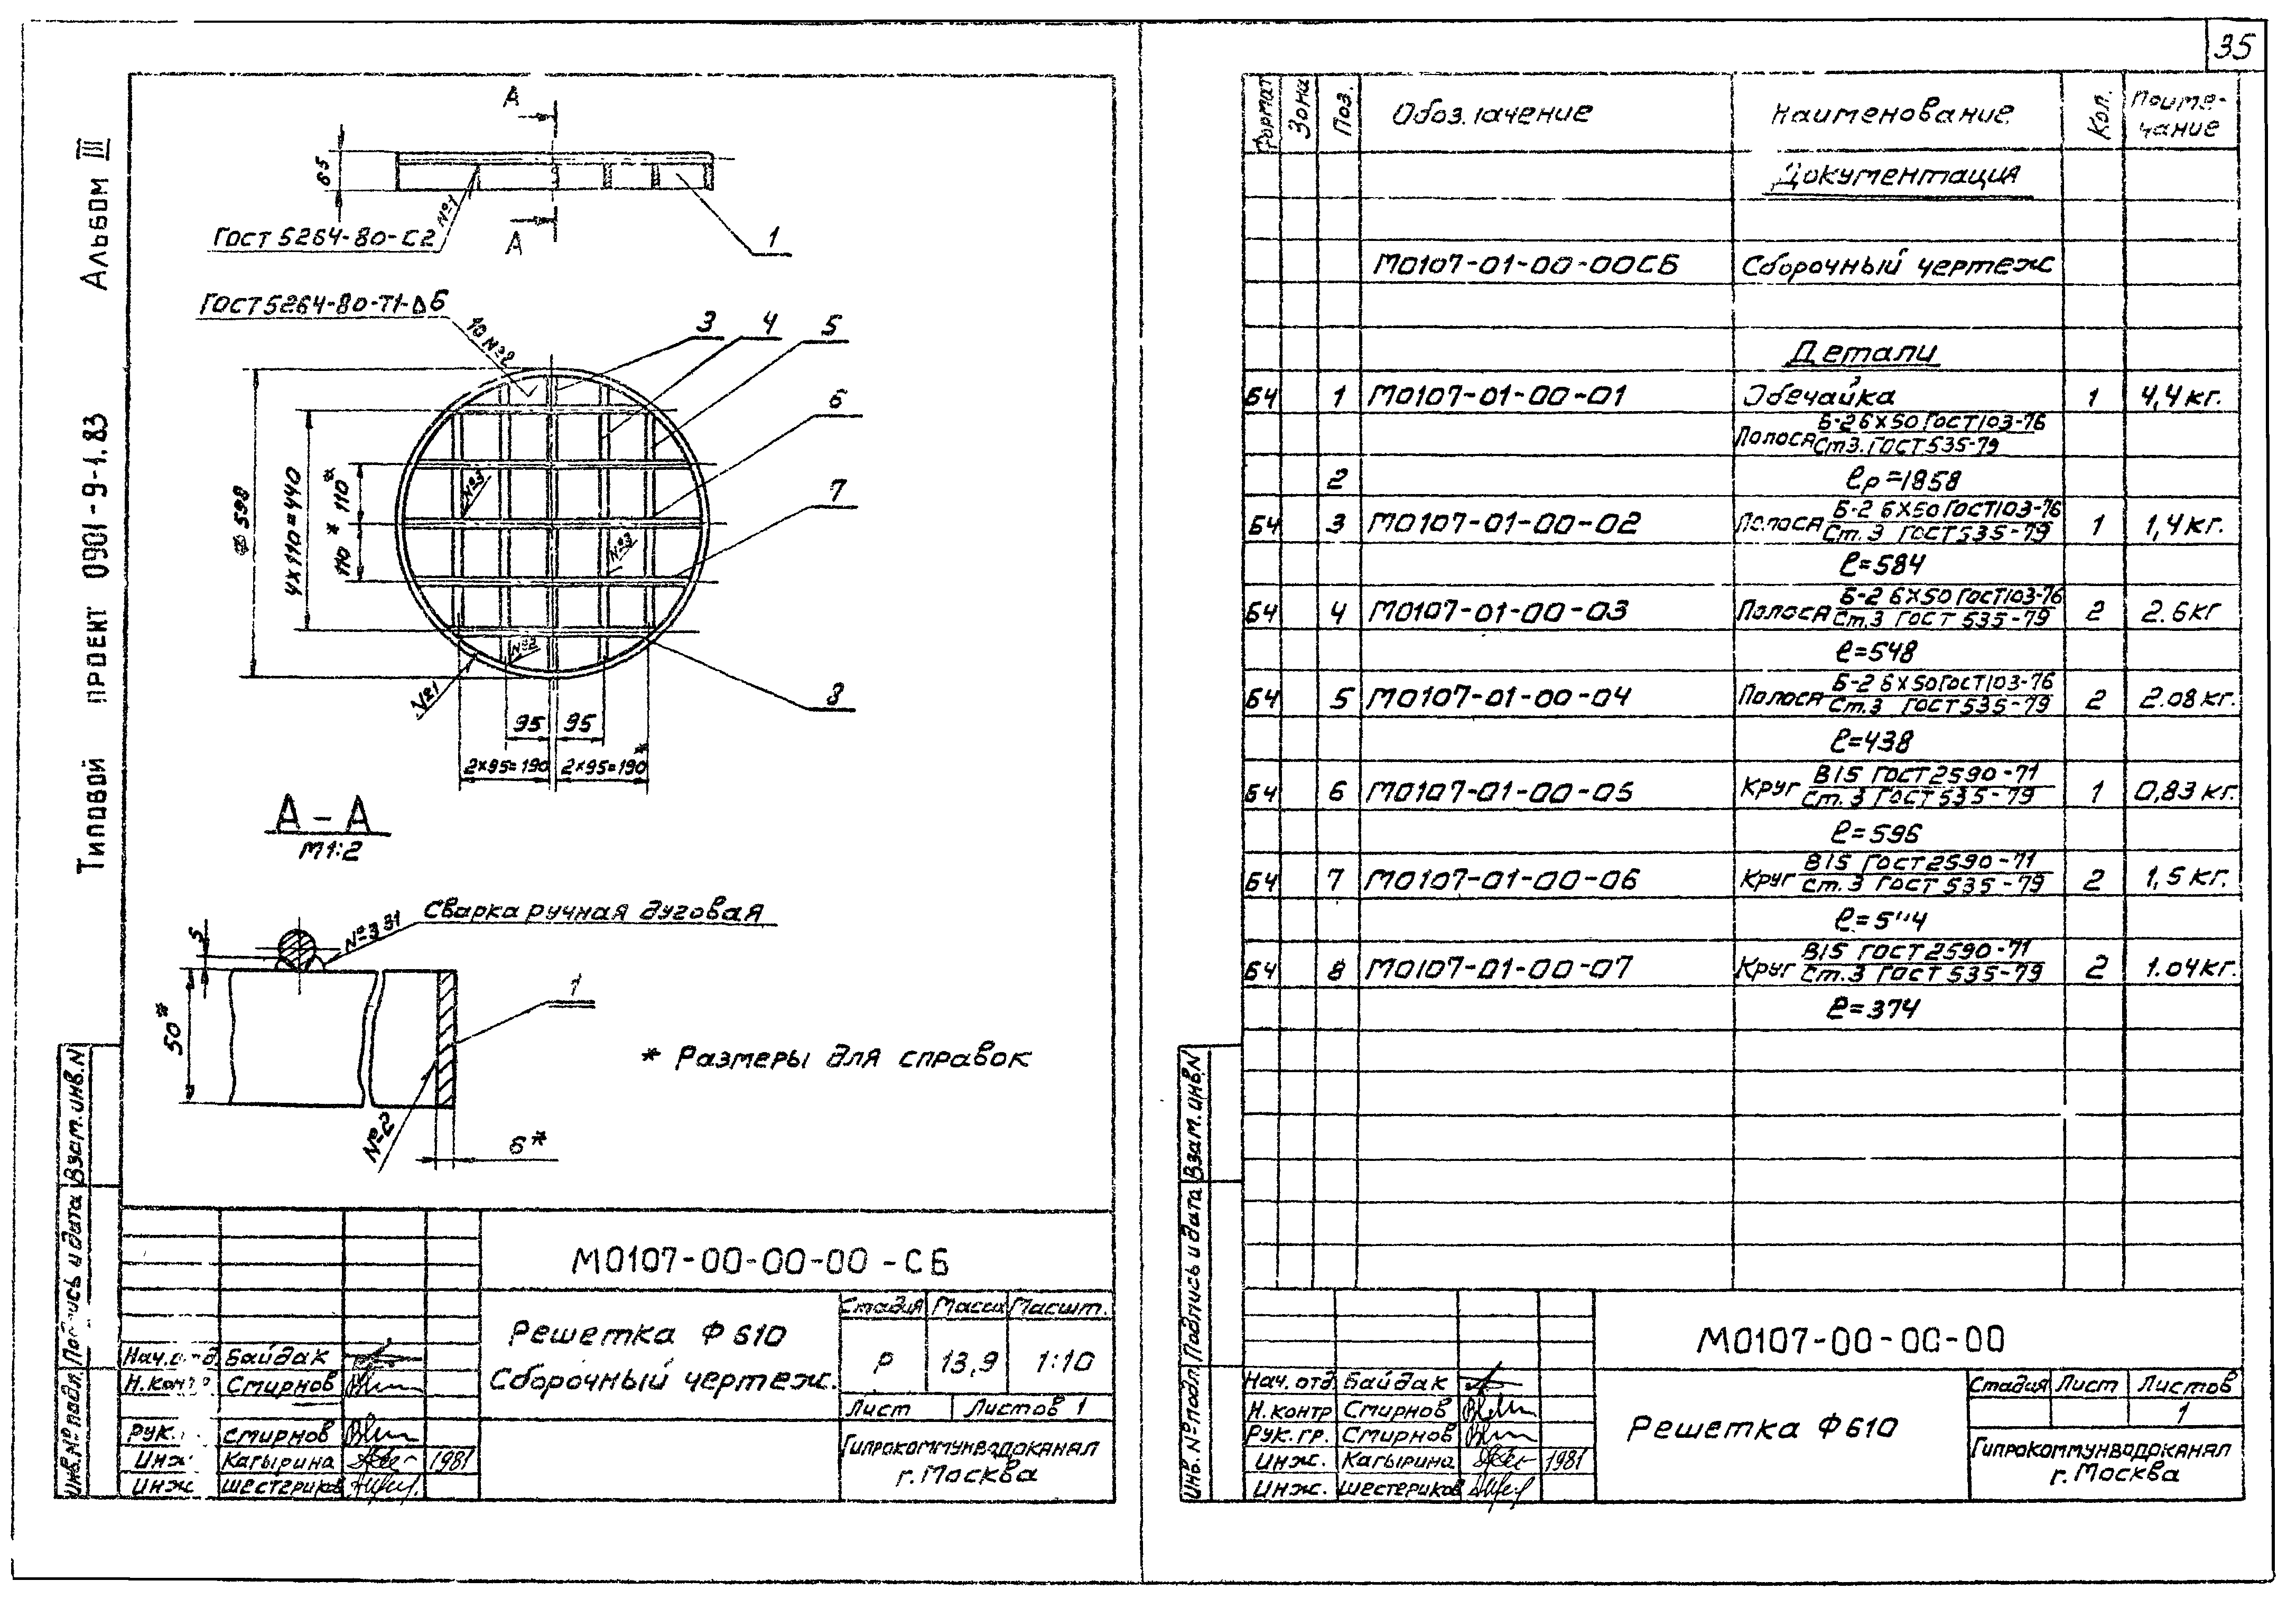 35
Альбом III
Типовой проект 0901-9-1.83
А
65
ГОСТ 5264-80-С2
№1
А
1
ГОСТ 5264-80-Т1-Δ6
10 №2
3
4
5
6
7
8
⌀ 598
4х110=440
110*
110*
№3
№3
№2
№1
95
95
2х95=190
2х95=190*
А - А
М1:2
Сварка ручная дуговая
5
50*
1
№2
6*
* Размеры для справок
Инв.№подл.
Подпись и дата
Взам.инв.N
М0107-00-00-00 -СБ
Решетка Ф 610
Сборочный чертеж.
Стадия Масса Масшт.
Р 13,9 1:10
Лист Листов 1
Гипрокоммунводоканал
г. Москва
Байдак
Н.контр. Смирнов
Рук. Смирнов
Инж Кагырина 1981
Инж Шестериков
Формат Зона Поз. Обозначение Наименование Кол. Примечание
Документация
М0107-01-00-00СБ Сборочный чертеж
Детали
БЧ 1 М0107-01-00-01 Обечайка 1 4,4 кг.
Полоса Б-2 6х50 ГОСТ103-76
Ст3. ГОСТ 535-79
2 ℓр=1858
БЧ 3 М0107-01-00-02 Полоса Б-2 6х50 ГОСТ103-76 1 1,4 кг.
Ст.3 ГОСТ 535-79
ℓ=584
БЧ 4 М0107-01-00-03 Полоса Б-2 6х50 ГОСТ103-76 2 2.6 кг
Ст.3 ГОСТ 535-79
ℓ=548
БЧ 5 М0107-01-00-04 Полоса Б-2 6х50 ГОСТ103-76 2 2.08 кг.
Ст.3 ГОСТ 535-79
ℓ=438
БЧ 6 М0107-01-00-05 Круг В15 ГОСТ 2590-71 1 0,83 кг.
Ст.3 ГОСТ 535-79
ℓ=596
БЧ 7 М0107-01-00-06 Круг В15 ГОСТ 2590-71 2 1,5 кг.
Ст.3 ГОСТ 535-79
БЧ 8 М0107-01-00-07 Круг В15 ГОСТ 2590-71 2 1.04 кг.
Ст.3 ГОСТ 535-79
ℓ=374
Инв.№подл.
Подпись и дата
Взам.инв.N
М0107-00-00-00
Решетка Ф 610
Стадия Лист Листов
1
Гипрокоммунводоканал
г. Москва
Нач. отд. Байдак
Н.контр Смирнов
Рук.гр. Смирнов
Инж. Кагырина 1981
Инж. Шестериков